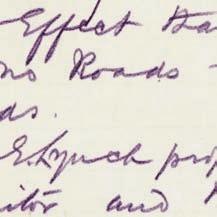 Effect
no Roads
ds.
E. Lynch prop
itor and